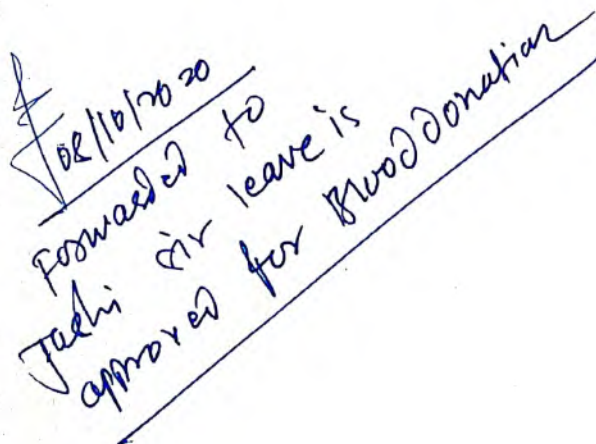 08/10/2020
Forwarded to
Joshi sir leave is
approved for Blood Donation